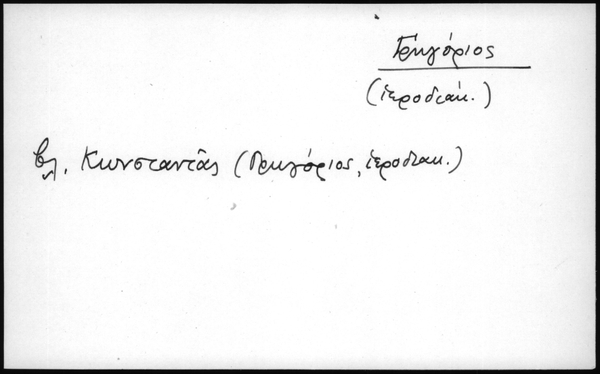 Γρηγόριος
(ἱεροδιάκ.)
βλ. Κωνσταντᾶς (Γρηγόριος, ἱεροδιακ.)